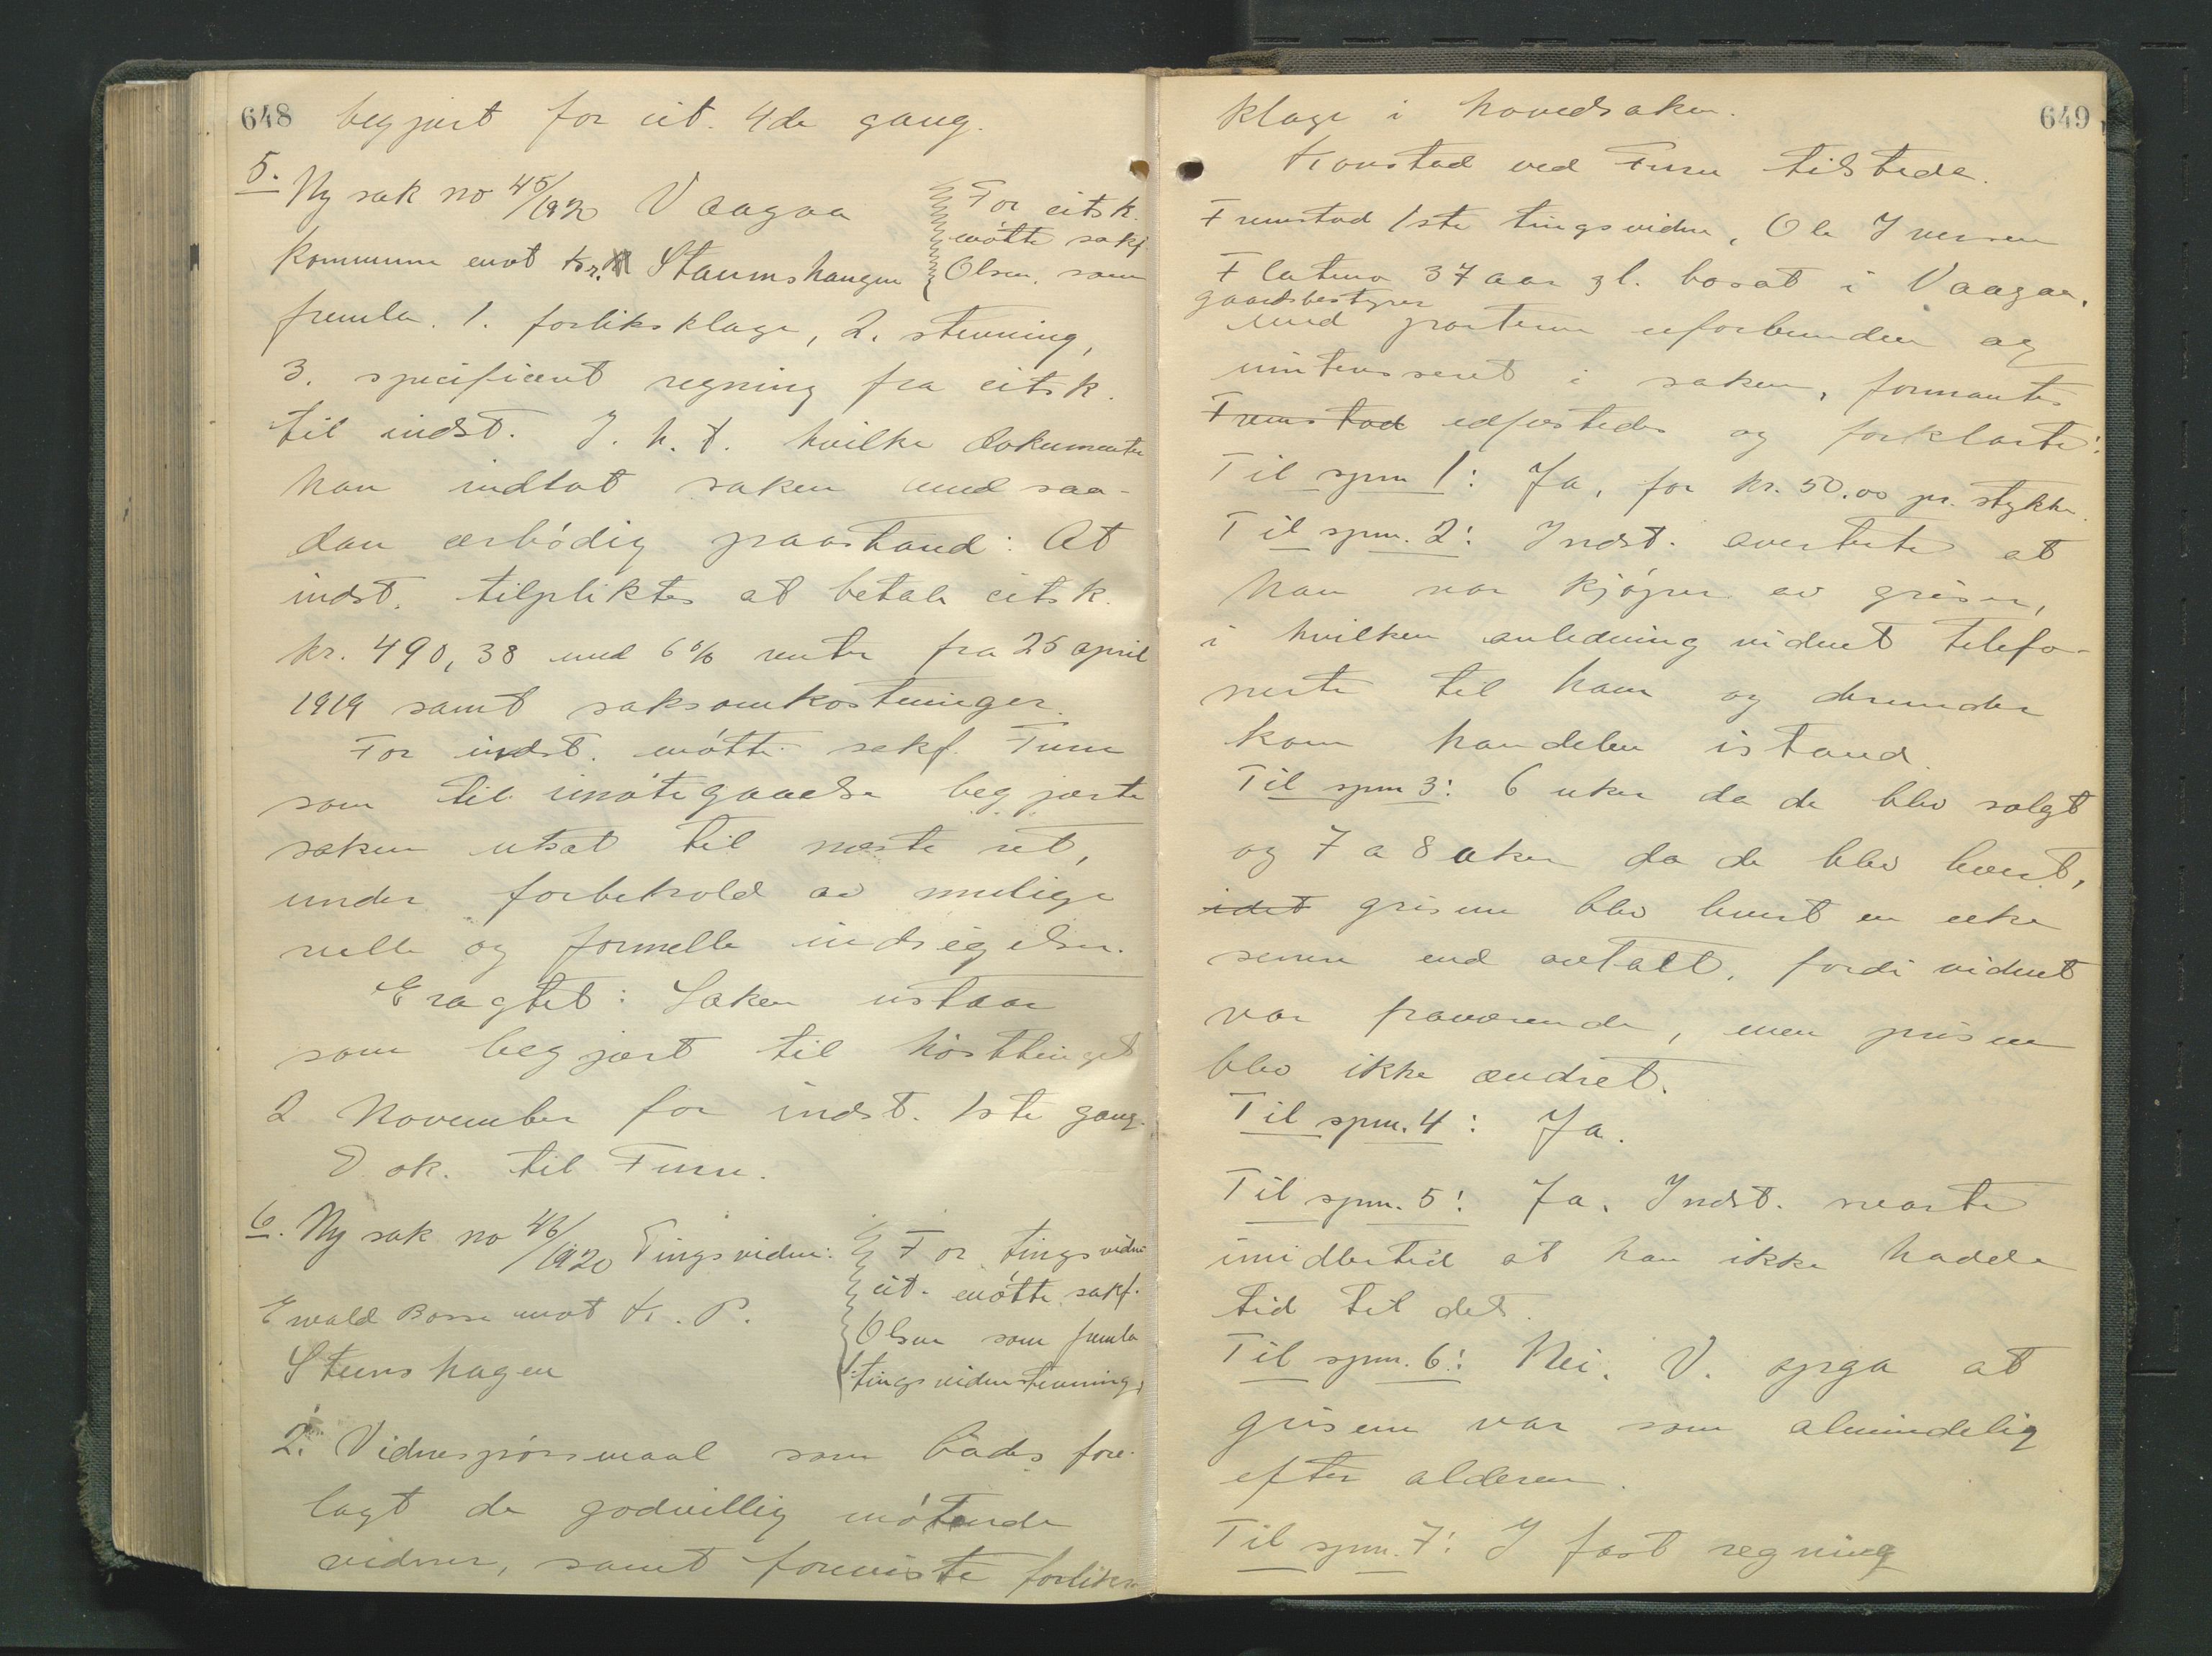 648 begjært for cit. 4de gang.
5. Ny sak no 45/1920 Vaagaa
kommune mot Kr. Staurnshaugen
For citsk.
møtte sakf.
Olsen, som
fremla. 1. forliksklage, 2. stevning,
3. specificert regning fra citsk.
til indst. I. h. t. hvilke dokumenter
han indlot saken med saa-
dan ærbødig paastand: At
indst. tilpliktes at betale citsk.
kr. 490,38 med 6% renter fra 25 april
1919 samt saksomkostninger.
For indst. møtte sakf. Furu
som til imøtegaaelse begjærte
saken utsat til næste ret,
under forbehold av mulige
relle og formelle indsigelser.
Eragtet: Saken utstaar
som begjært til høsttinget
2 November for indst. 1ste gang.
Dok. til Furu.
6. Ny sak no 46/1920 Tingsvidne:
Ewald Bosse mot Kr. P.
Steinshagen
For tingsvidne
cit. møtte sakf.
Olsen som fremla
1. tingsvidnestevning,
2. Vidnespørsmaal som bades fore-
lagt de godvillig møtende
vidner, samt foreviste forliks-
649
klage i hovedsaken.
Kontrad ved Furu tilstede.
Fremstod 1ste tingsvidne, Ole Iversen
Flatmo 37 aar gl. bosat i Vaagaa,
gaardsbestyrer
med parterne uforbunden og
uinteresseret i saken, formantes
Fremstod edfæstedes og forklarte:
Til spm 1: Ja, for kr. 50.00 pr. stykke.
Til spm. 2: Indst. averterte at
han var kjøper av griser,
i hvilken anledning vidnet telefo-
nerte til ham og derunder
kom handelen istand.
Til spm 3: 6 uker da de blev solgt
og 7 a 8 uker da de blev levert,
idet grisene blev levert en uke
senere end avtalt, fordi vidnet
var fraværende, men prisen
blev ikke ændret.
Til spm. 4: Ja.
Til spm. 5: Ja. Indst. svarte
imidlertid at han ikke hadde
tid til det.
Til spm. 6: Nei. V. opga at
grisene var som almindelig
efter alderen.
Til spm. 7: I fast regning